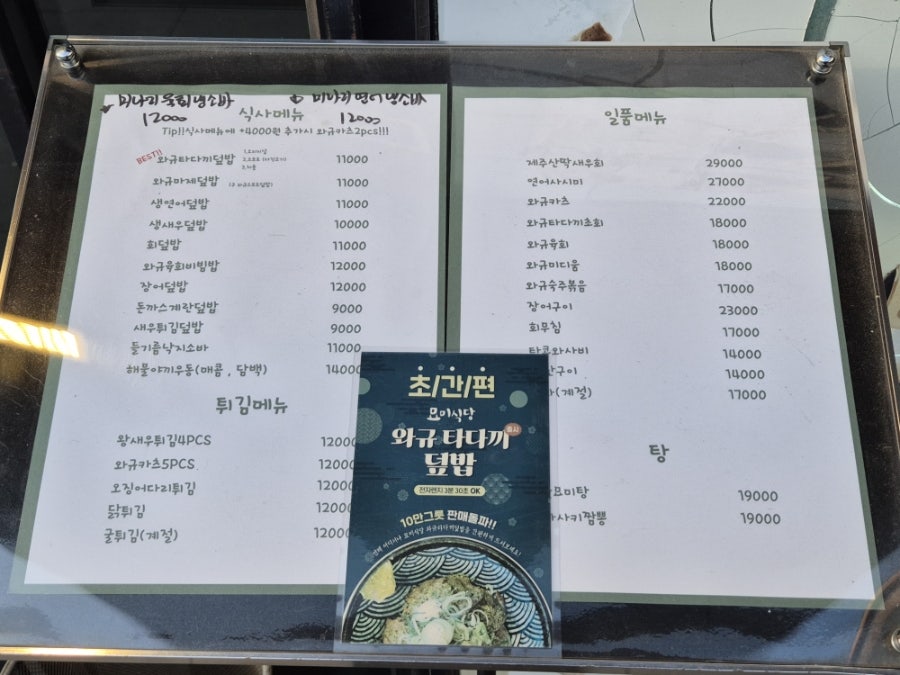 미나리 연어 냉소바
12000
12000
식사메뉴
Tip!!식사메뉴에 +4000원 추가시 와규카츠2pcs!!!
BEST!! 와규타다끼덮밥 11000
와규마제덮밥 11000
생연어덮밥 11000
생새우덮밥 10000
회덮밥 11000
와규육회비빔밥 12000
장어덮밥 12000
돈까스계란덮밥 9000
새우튀김덮밥 9000
들기름낙지소바 11000
해물야끼우동(매콤, 담백) 14000
튀김메뉴
왕새우튀김4PCS 12000
와규카츠5PCS 12000
오징어다리튀김 12000
닭튀김 12000
굴튀김(계절) 12000
일품메뉴
제주산딱새우회 29000
연어사시미 27000
와규카츠 22000
와규타다끼초회 18000
와규육회 18000
와규미디움 18000
와규숙주볶음 17000
장어구이 23000
회무침 17000
타코와사비 14000
구이 14000
(계절) 17000
탕
묘미탕 19000
사키짬뽕 19000
초/간/편
묘미식당
와규 타다끼 출시
덮밥
전자렌지 3분 30초 OK
10만그릇 판매돌파!!